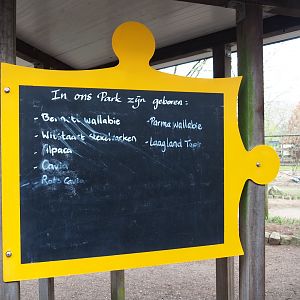 In ons Park zijn geboren:
- Bennett wallabie
- Parma wallabie
- Witstaart stekelvarken
- Laagland Tapir
- Alpaca
- Cavia
- Rots Cavia